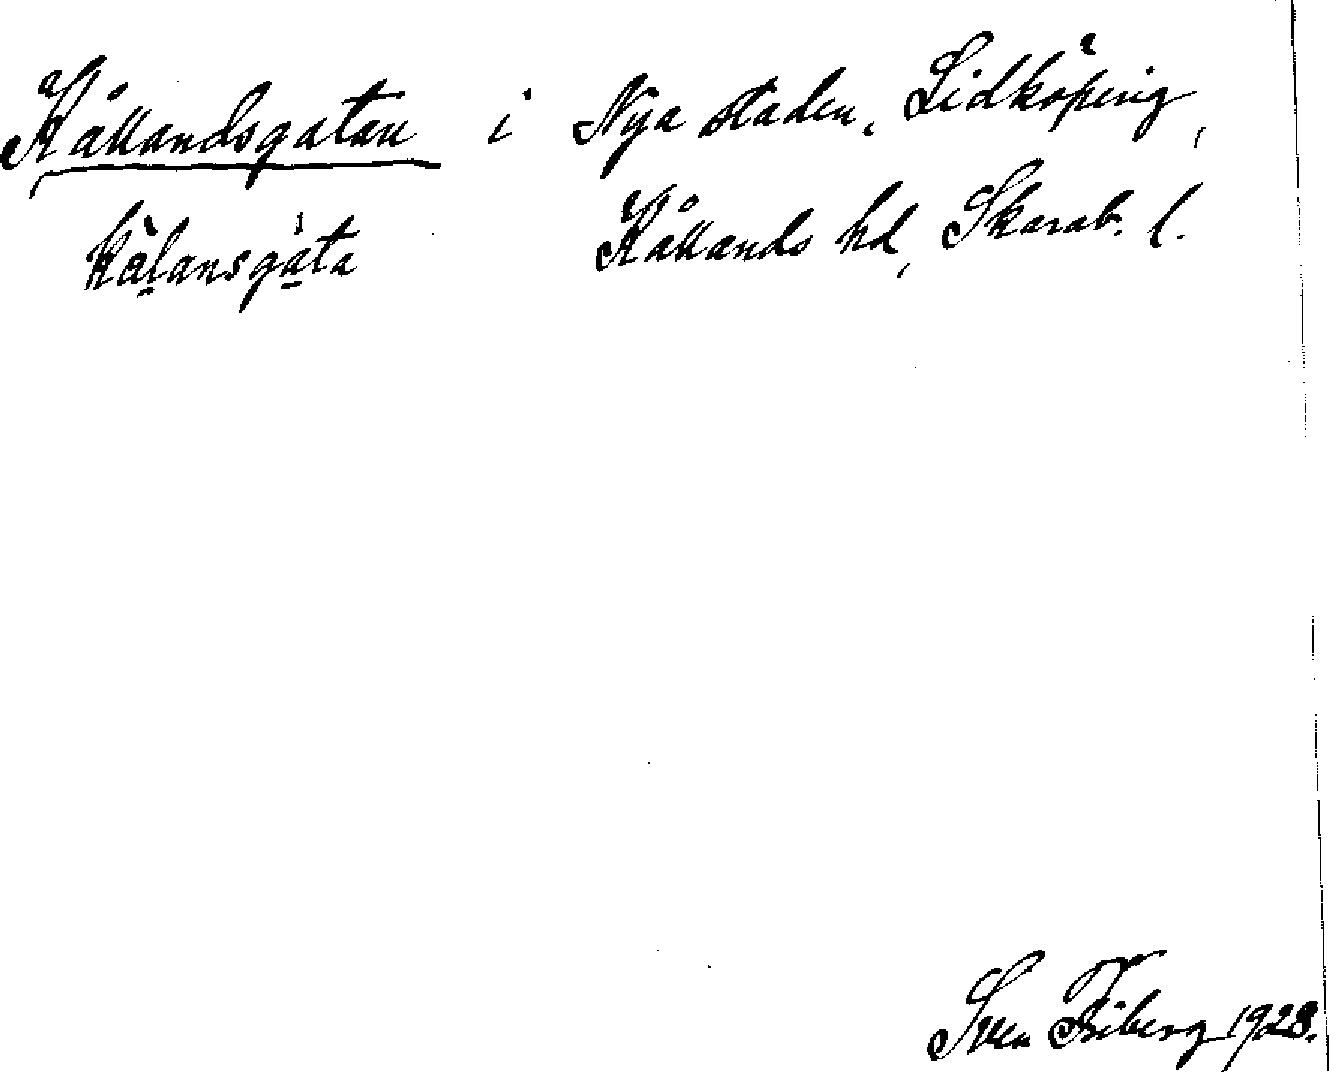 Kållandsgatan i Nya staden, Lidköping,
kålansgata Kållands hd, Skarab. l.
Sven Friberg 1923.